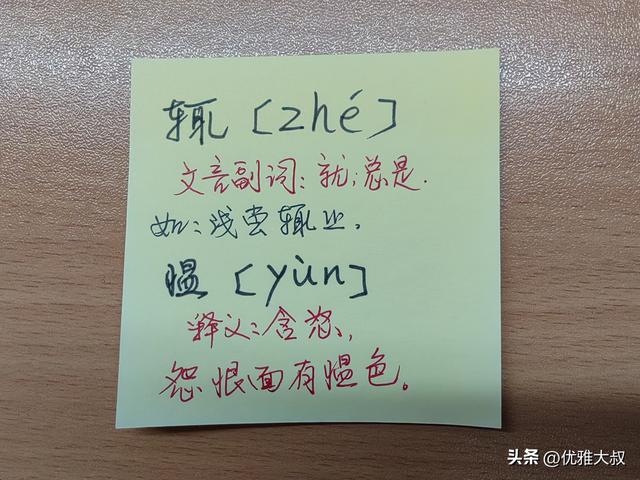 辄〔zhé〕
文言副词：就；总是.
如：浅尝辄止.
愠〔yùn〕
释义：含怒、
怨恨面有愠色。
头条 @优雅大叔